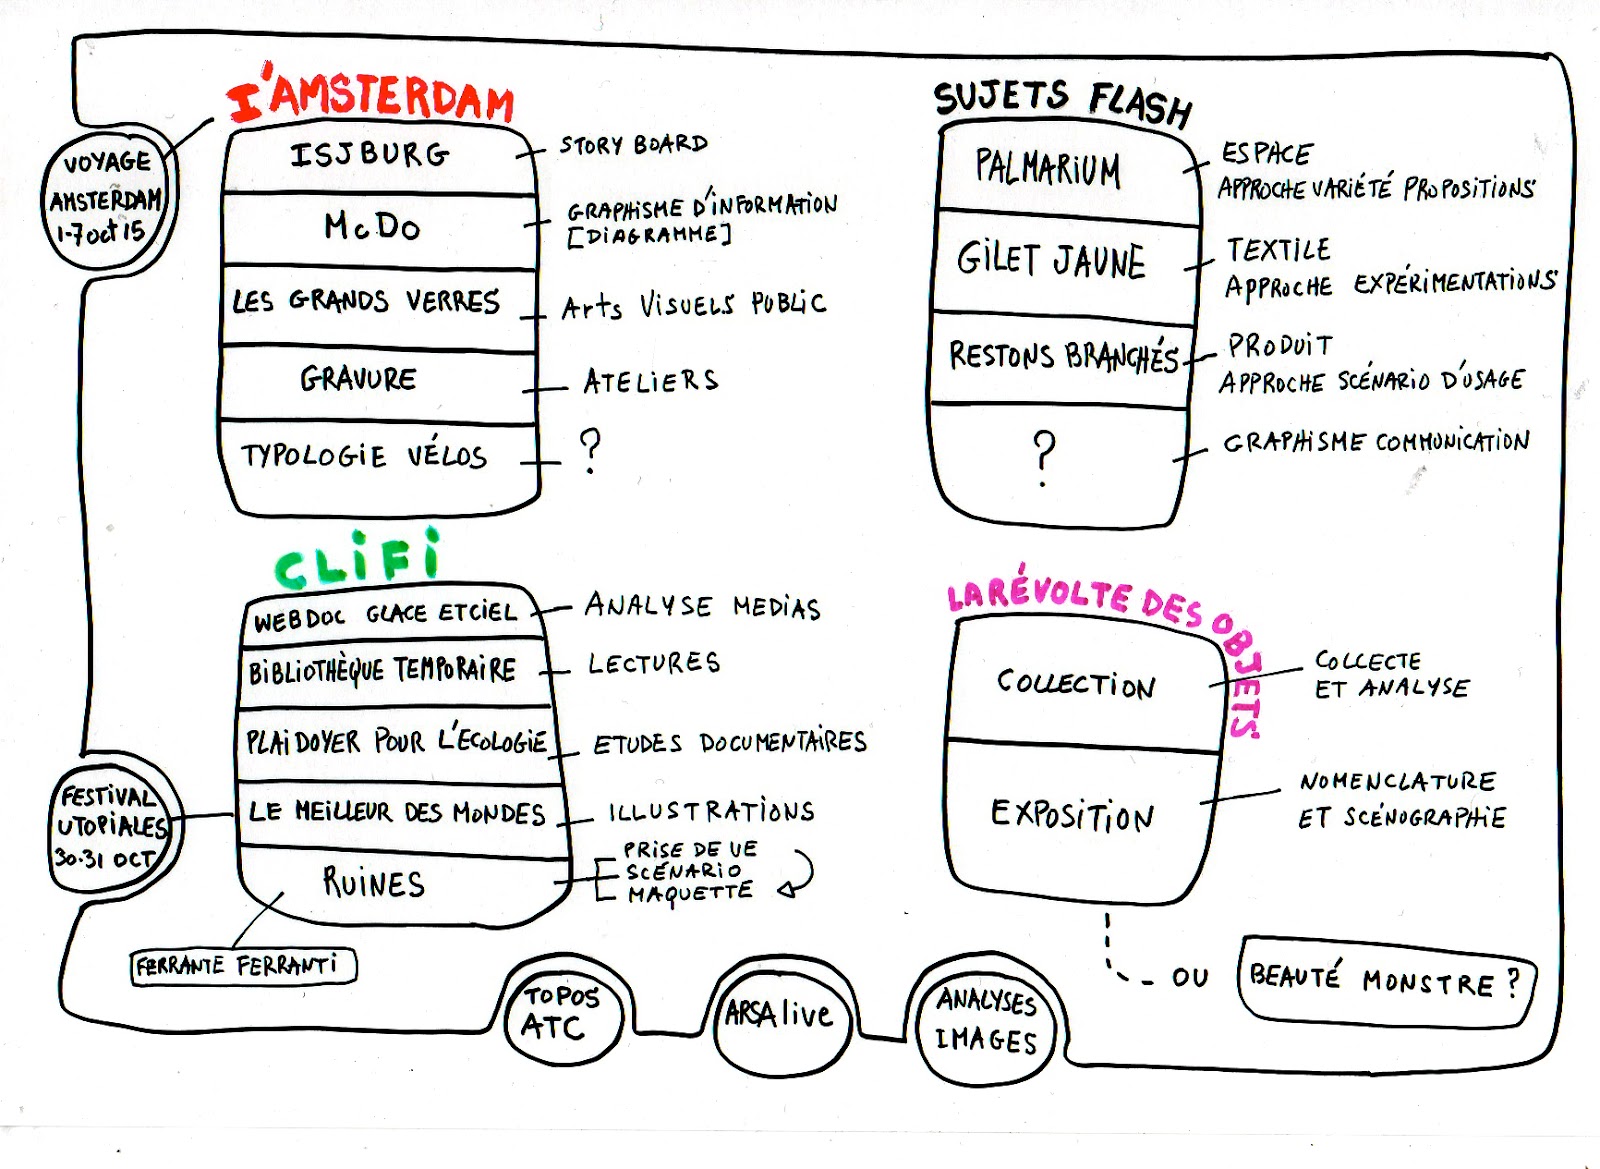 I'AMSTERDAM
VOYAGE
AMSTERDAM
1-7 oct 15
ISJBURG
STORY BOARD
McDo
GRAPHISME D'INFORMATION
[DIAGRAMME]
LES GRANDS VERRES
Arts VISUELS PUBLIC
GRAVURE
ATELIERS
TYPOLOGIE VÉLOS
?
SUJETS FLASH
PALMARIUM
ESPACE
APPROCHE VARIÉTÉ PROPOSITIONS
GILET JAUNE
TEXTILE
APPROCHE EXPÉRIMENTATIONS
RESTONS BRANCHÉS
PRODUIT
APPROCHE SCÉNARIO D'USAGE
?
GRAPHISME COMMUNICATION
CLIFI
WEBDOC GLACE ET CIEL
ANALYSE MEDIAS
BIBLIOTHÈQUE TEMPORAIRE
LECTURES
PLAIDOYER POUR L'ECOLOGIE
ETUDES DOCUMENTAIRES
FESTIVAL
UTOPIALES
30-31 OCT
LE MEILLEUR DES MONDES
ILLUSTRATIONS
RUINES
PRISE DE VE
SCÉNARIO
MAQUETTE
FERRANTE FERRANTI
LA RÉVOLTE DES OBJETS
COLLECTION
COLLECTE
ET ANALYSE
EXPOSITION
NOMENCLATURE
ET SCÉNOGRAPHIE
OU
BEAUTÉ MONSTRE ?
TOPOS
ATC
ARSA live
ANALYSES
IMAGES